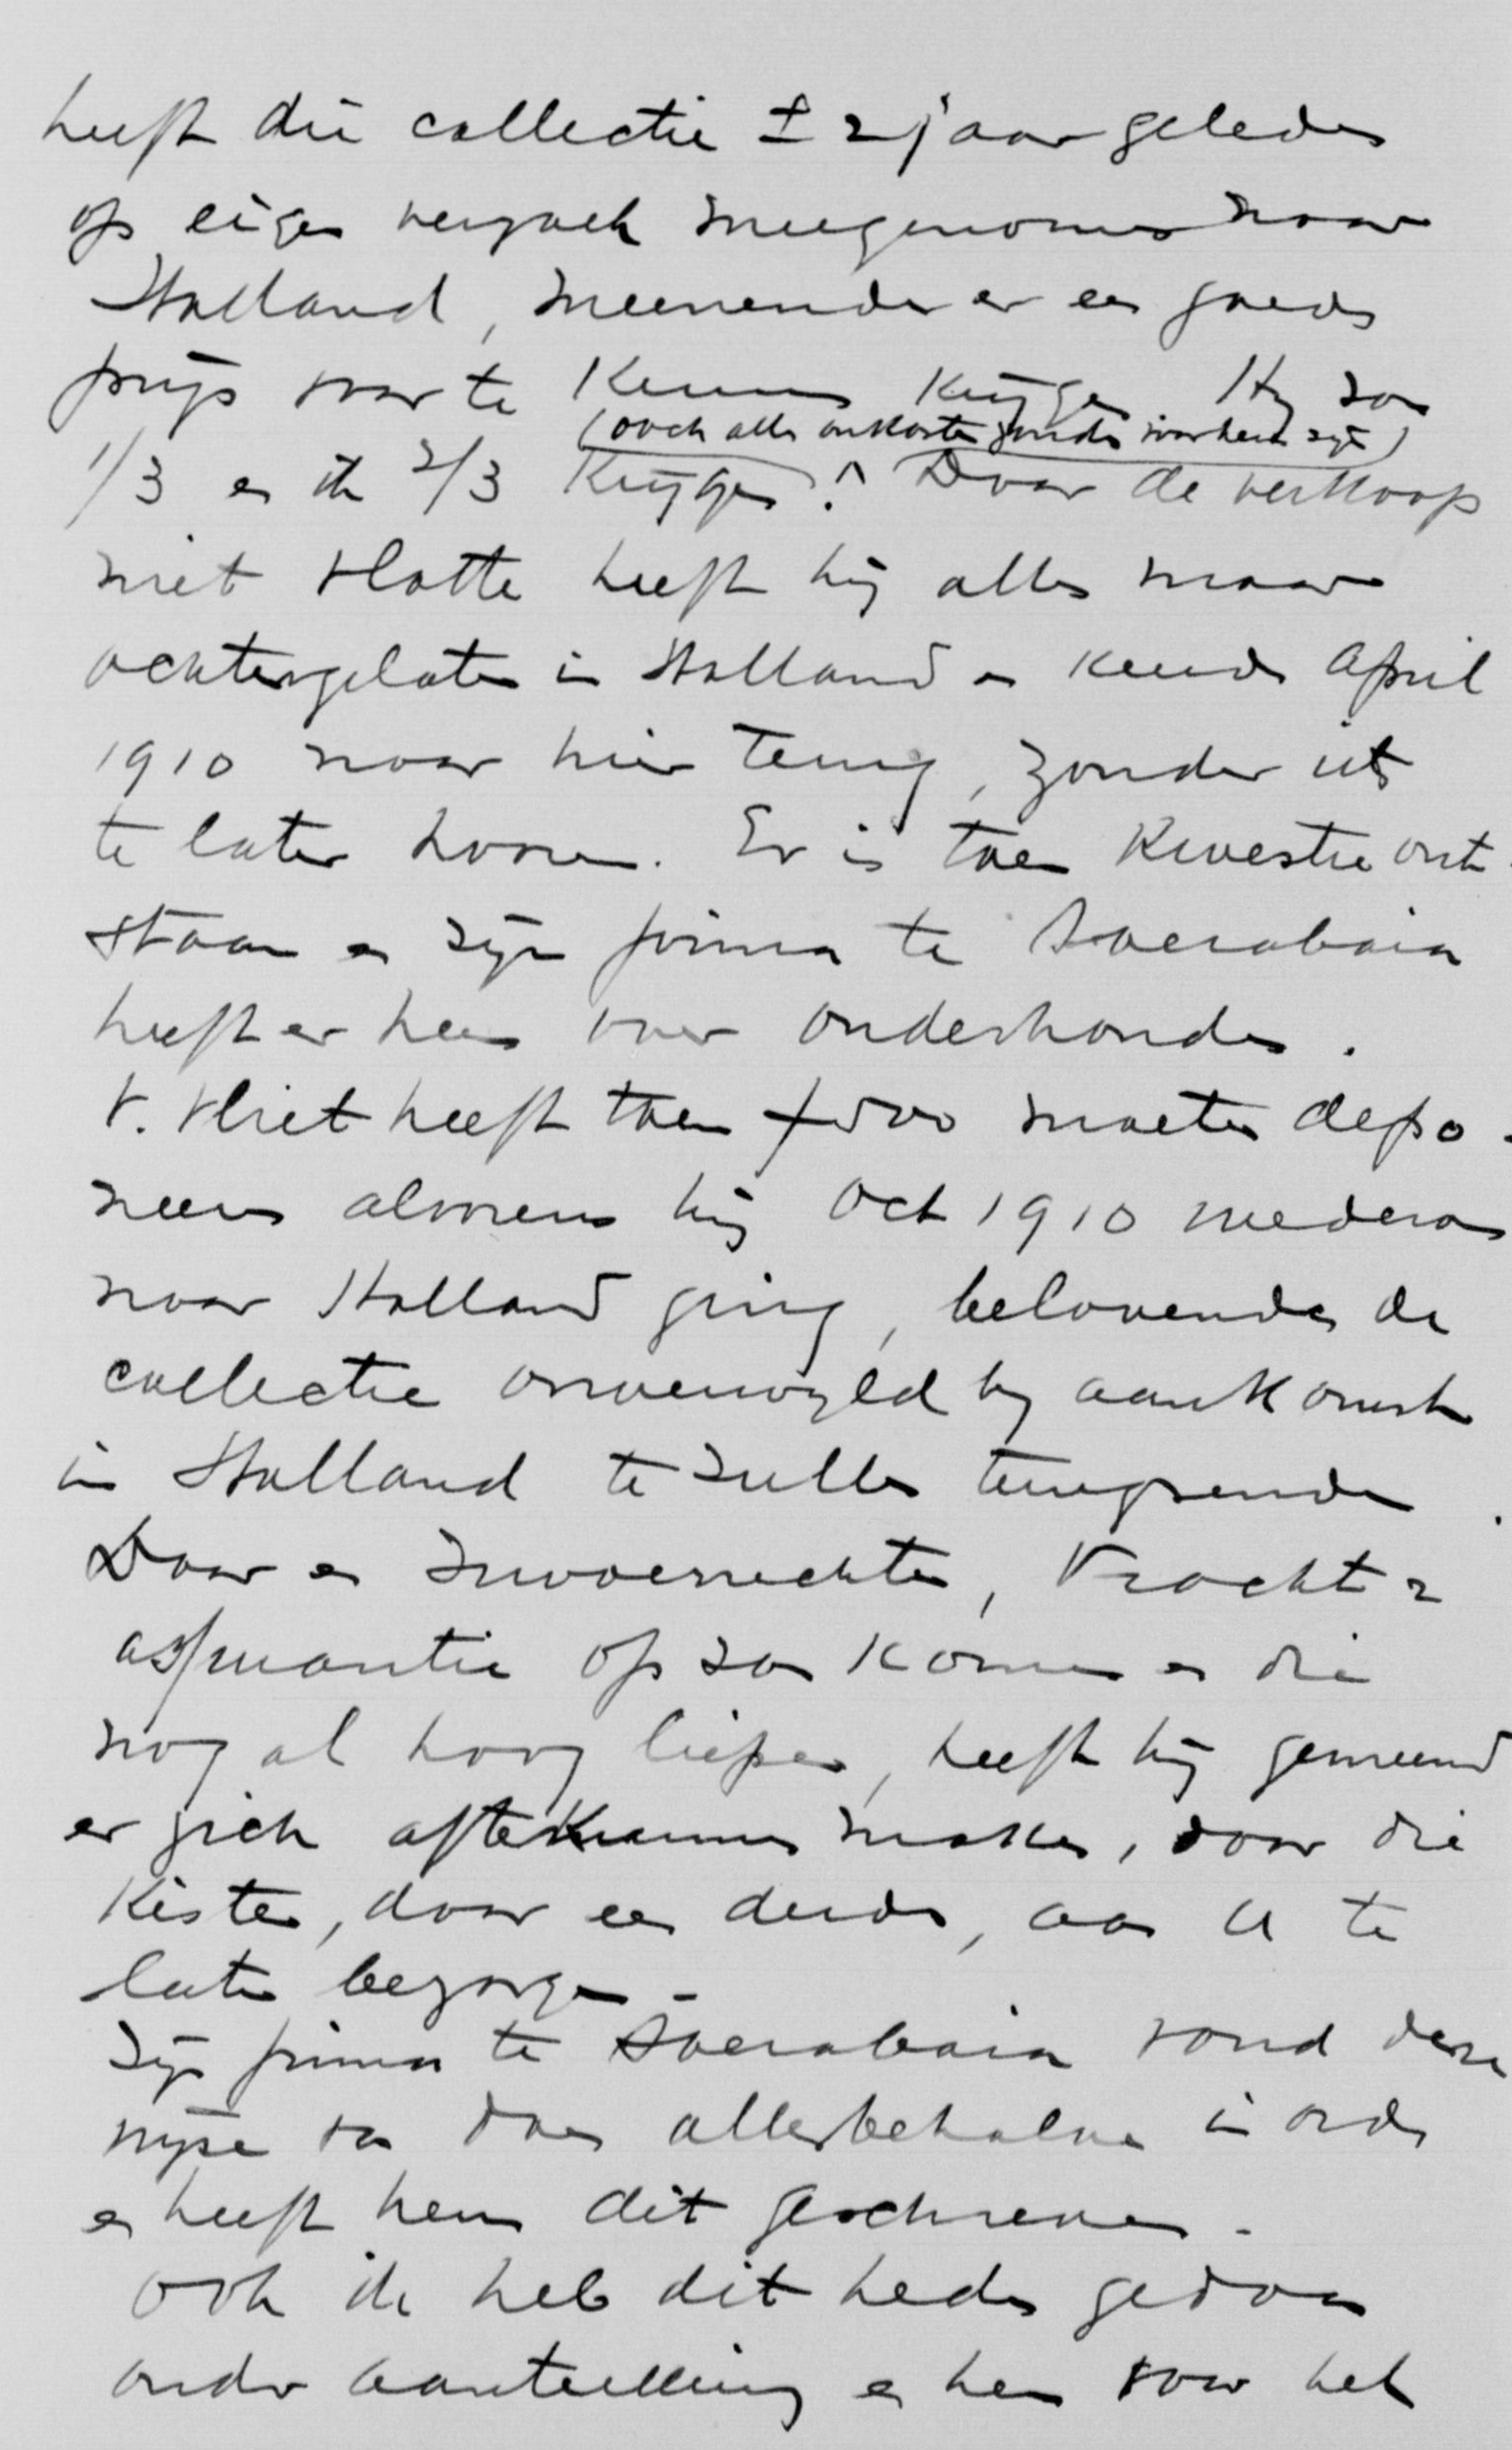 heeft die collectie ± 2 jaar geleden
op eigen verzoek meegenomen naar
Holland, meenende er een goede
prijs voor te kunnen krijgen. Hij zou
(ook alle onkosten zouden voor hem zijn)
1/3 en ik 2/3 krijgen. Daar de verkoop
niet vlotte heeft hij alles maar
achtergelaten in Holland en keerde April
1910 naar hier terug, zonder iets
te laten hooren. Er is toen kwestie ont-
staan en zijn firma te Soerabaia
heeft er hem over onderhouden.
V. Vliet heeft toen f 500 moeten depo-
neeren alvorens hij Oct 1910 wederom
naar Holland ging, belovende de
collectie onverwijld bij aankomst
in Holland te zullen terugzenden.
Daar er invoerrechten, vracht &
assurantie op zou komen en die
nog al hoog liepen, heeft hij gemeend
er zich af te kunnen maken, door die
kisten, door een derde, aan U te
laten bezorgen.
Zijn firma te Soerabaia vond deze
wijze van doen allesbehalve in orde
en heeft hem dit geschreven.
Ook ik heb dit heden gedaan
onder aanteekening en hem voor het